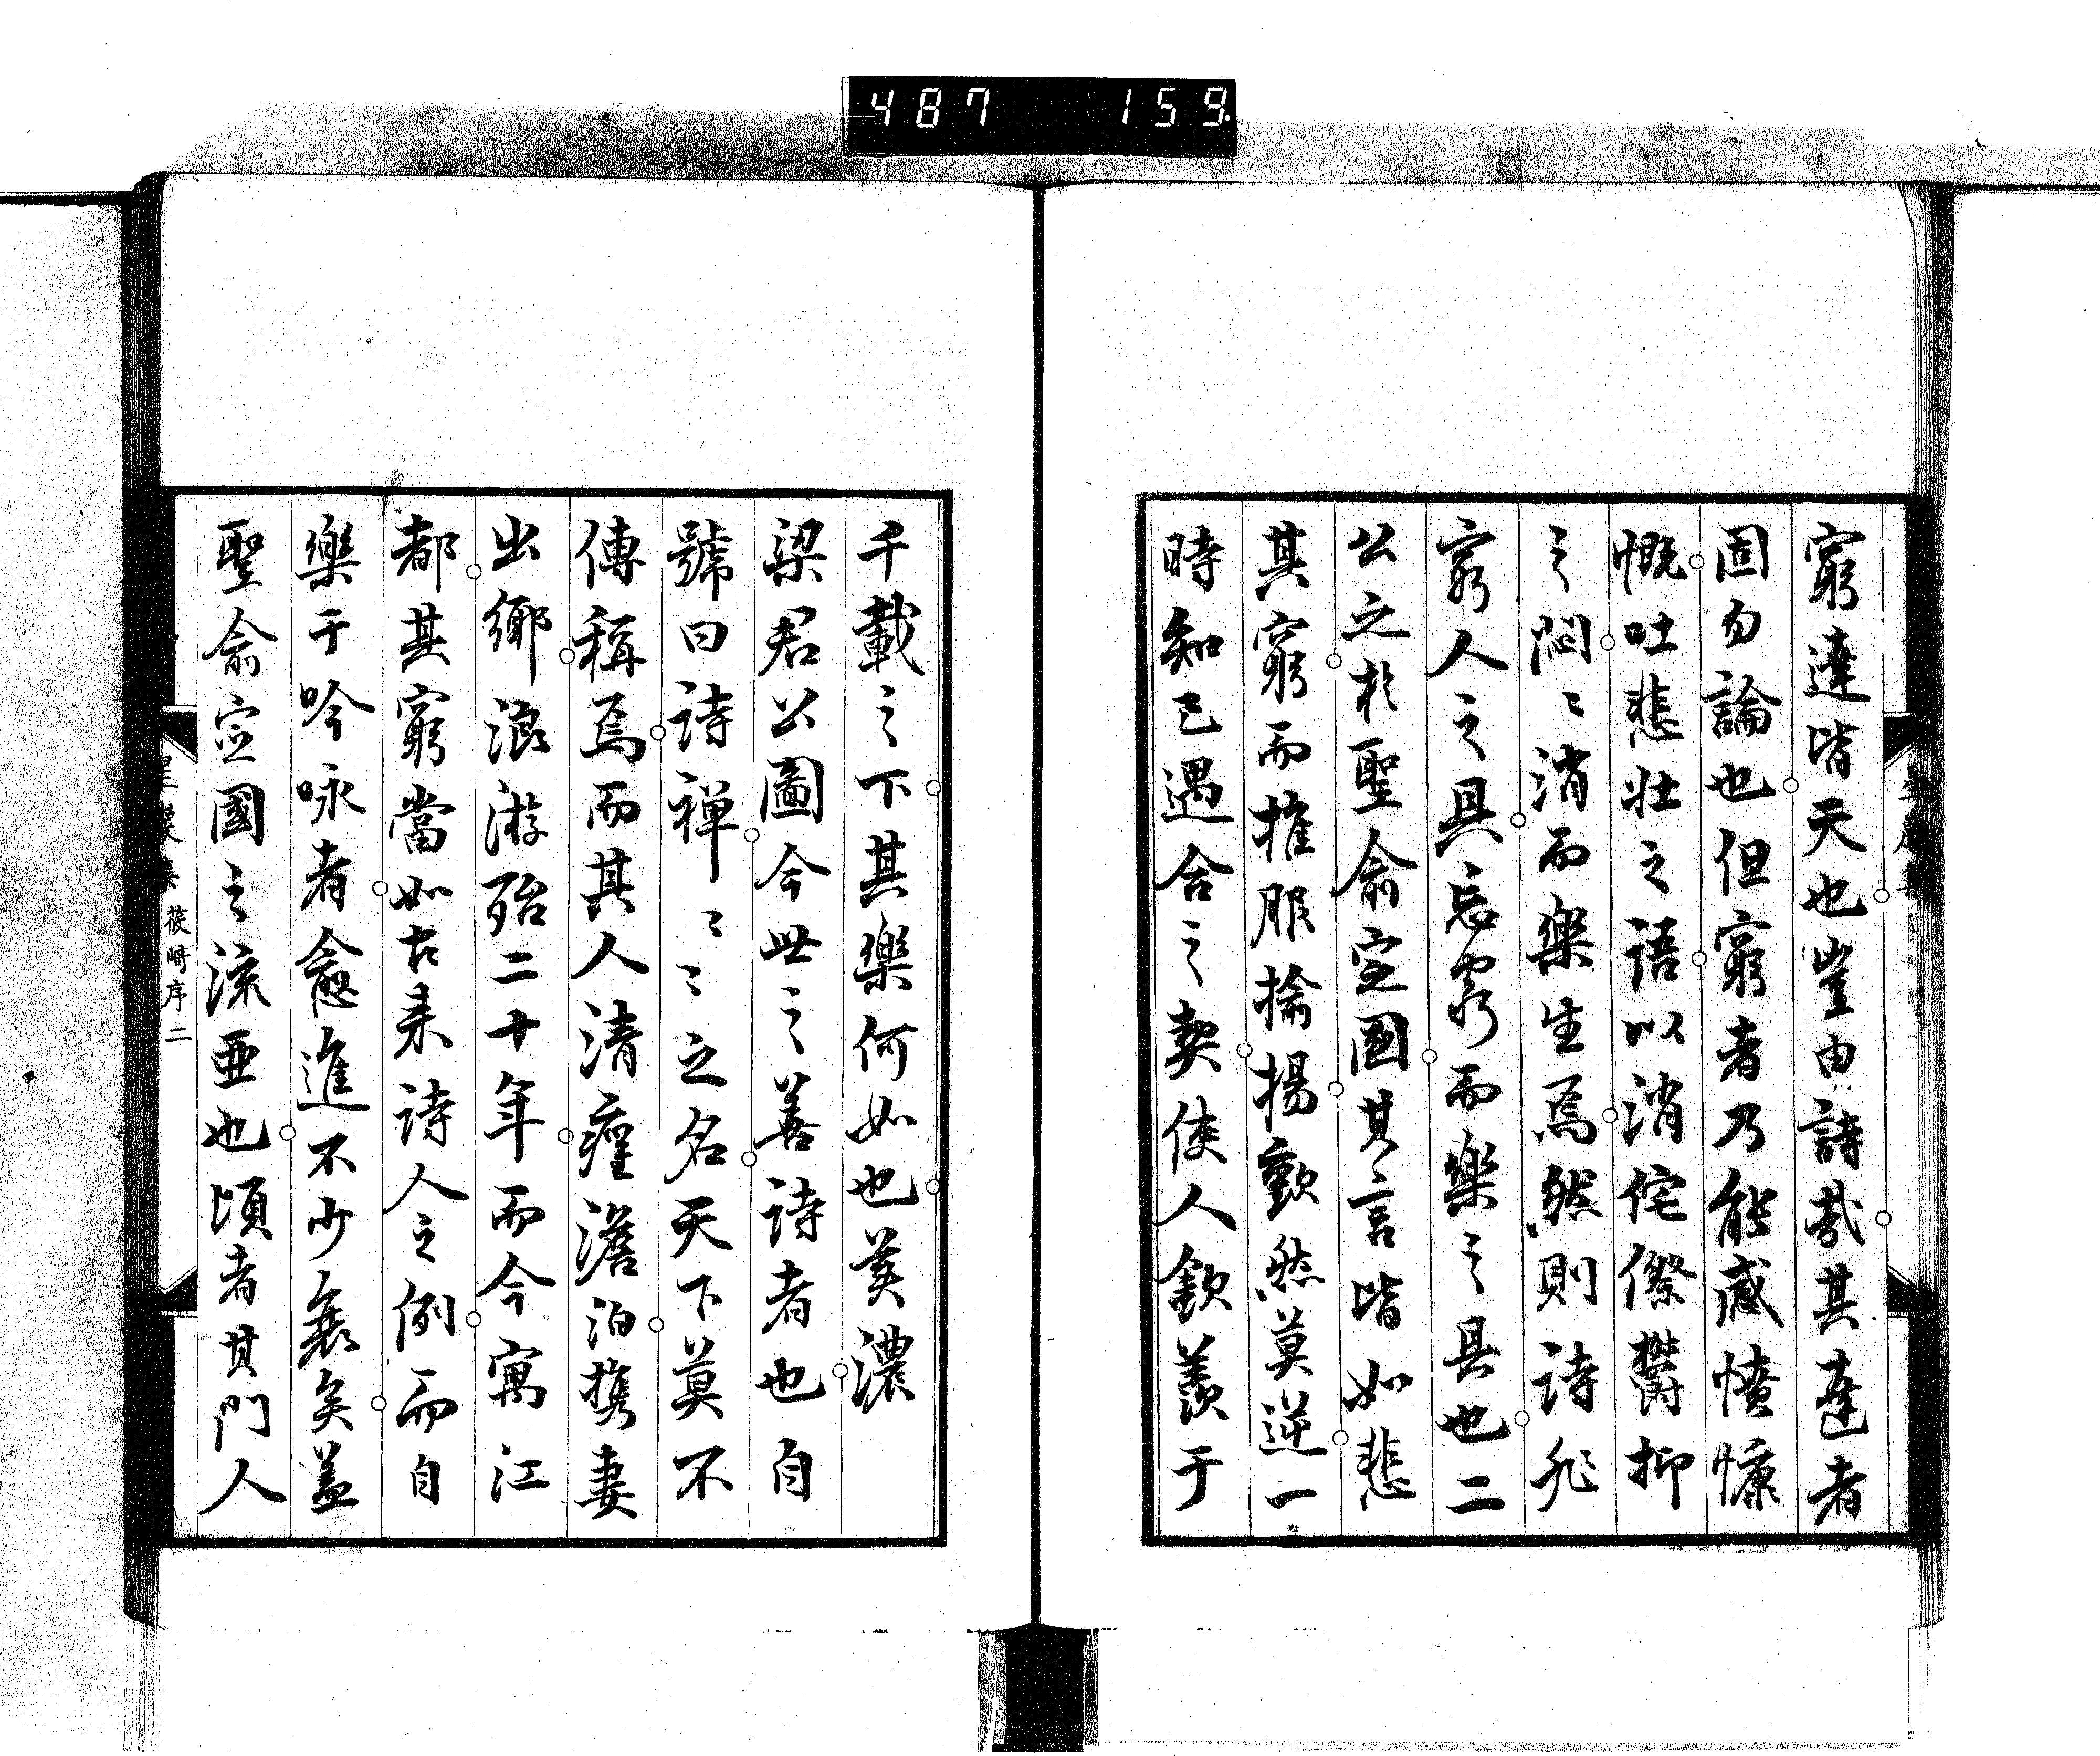 487 159
窮達皆天也豈由詩哉其達者
固勿論也但窮者乃能感憤慷
慨吐悲壯之語以消侘傺鬱抑
之悶〻消而樂生焉然則詩非
窮人之具忘窮而樂之具也二
公之於聖俞定國其言皆如悲
其窮而推服揄揚歡然莫逆一
時知己遇合之契使人欽羨于
千載之下其樂何如也美濃
梁君公圖今世之善詩者也自
號曰詩禪〻〻之名天下莫不
傳稱焉而其人清癯澹泊攜妻
出鄉浪游殆二十年而今寓江
都其窮當如古来詩人之例而自
樂于吟咏者愈進不少衰矣蓋
聖俞定國之流亜也頃者其門人
筱崎序 二